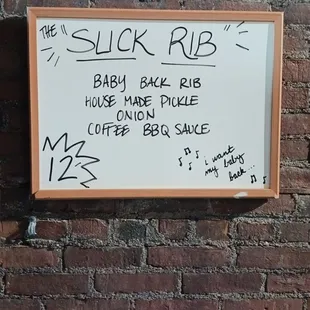 THE "SLICK RIB"
BABY BACK RIB
HOUSE MADE PICKLE
ONION
COFFEE BBQ SAUCE
12
i want
my baby
back...